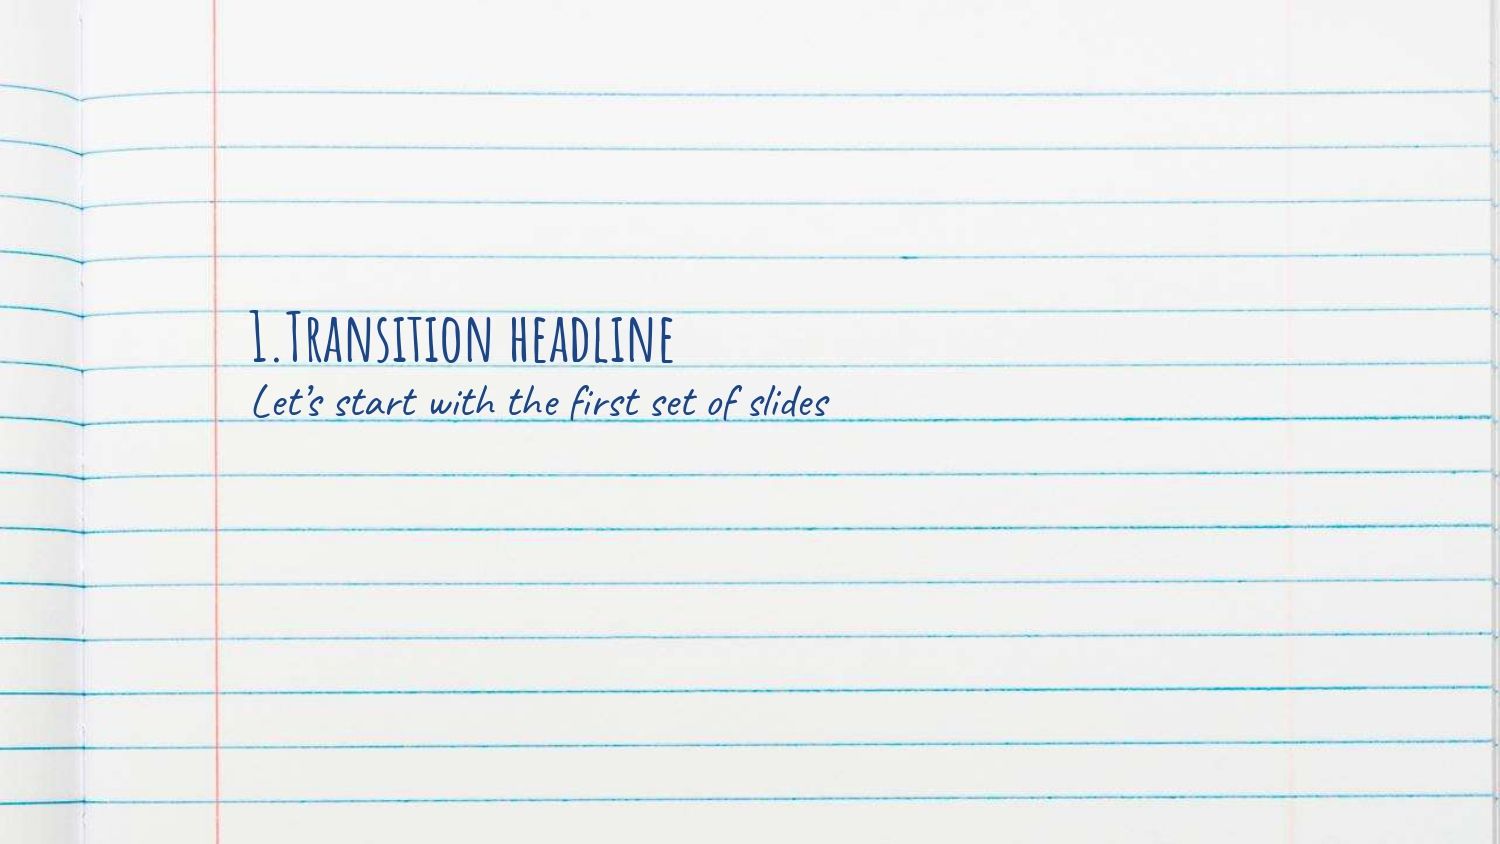 1.Transition headline
Let’s start with the first set of slides